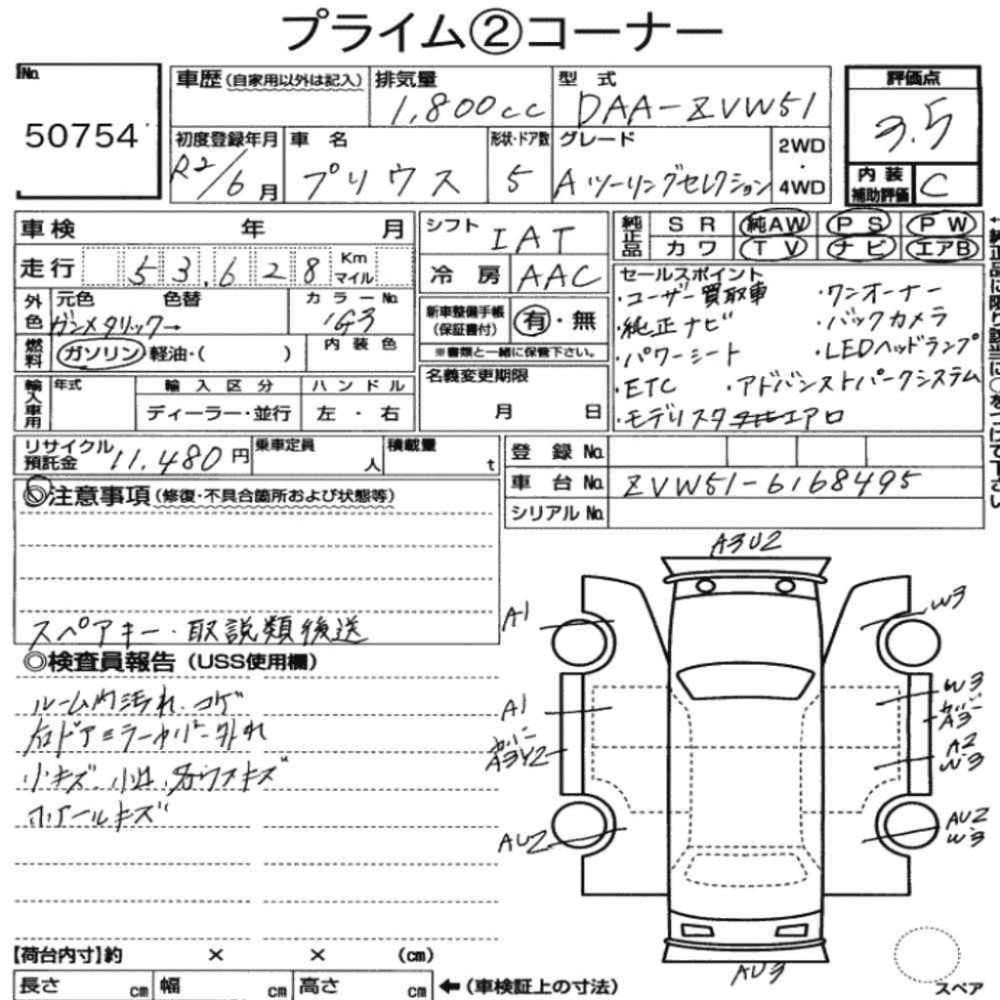 プライム②コーナー
No.
50754
車歴(自家用以外は記入)
排気量
1,800cc
型式
DAA-ZVW51
評価点
3.5
初度登録年月
R2/6月
車名
プリウス
形状・ドア数
5
グレード
Aツーリングセレクション
2WD
・
4WD
内装
補助評価
C
車検 年 月
シフト
IAT
純正品
SR 純AW PS PW
カワ TV ナビ エアB
走行
53,628
Km
マイル
冷房
AAC
セールスポイント
・ユーザー買取車 ・ワンオーナー
・純正ナビ ・バックカメラ
・パワーシート ・LEDヘッドランプ
・ETC ・アドバンストパークシステム
・モデリスタ エアロ
外色
元色 色替
ガンメタリック→
カラーNo.
1G3
新車整備手帳
(保証書付)
有・無
※書類と一緒に保管下さい。
燃料
ガソリン 軽油・( )
内装色
名義変更期限
月 日
輸入車用
年式
輸入区分
ハンドル
ディーラー・並行
左・右
リサイクル
預託金
11,480円
乗車定員
人
積載量
t
登録No.
車台No.
ZVW51-6168495
シリアルNo.
◎注意事項(修復・不具合箇所および状態等)
スペアキー・取説類後送
◎検査員報告(USS使用欄)
ルーム内汚れ、コゲ
右ドアミラーカバー外れ
小キズ、小凹、ガラスキズ
ホイールキズ
A3U2
A1
W3
A1
W3
カバー
A3
カバー
A3Y2
A2
W3
AU2
AU2
W3
AU3
スペア
【荷台内寸】約 × × (cm)
長さ cm 幅 cm 高さ cm ←(車検証上の寸法)